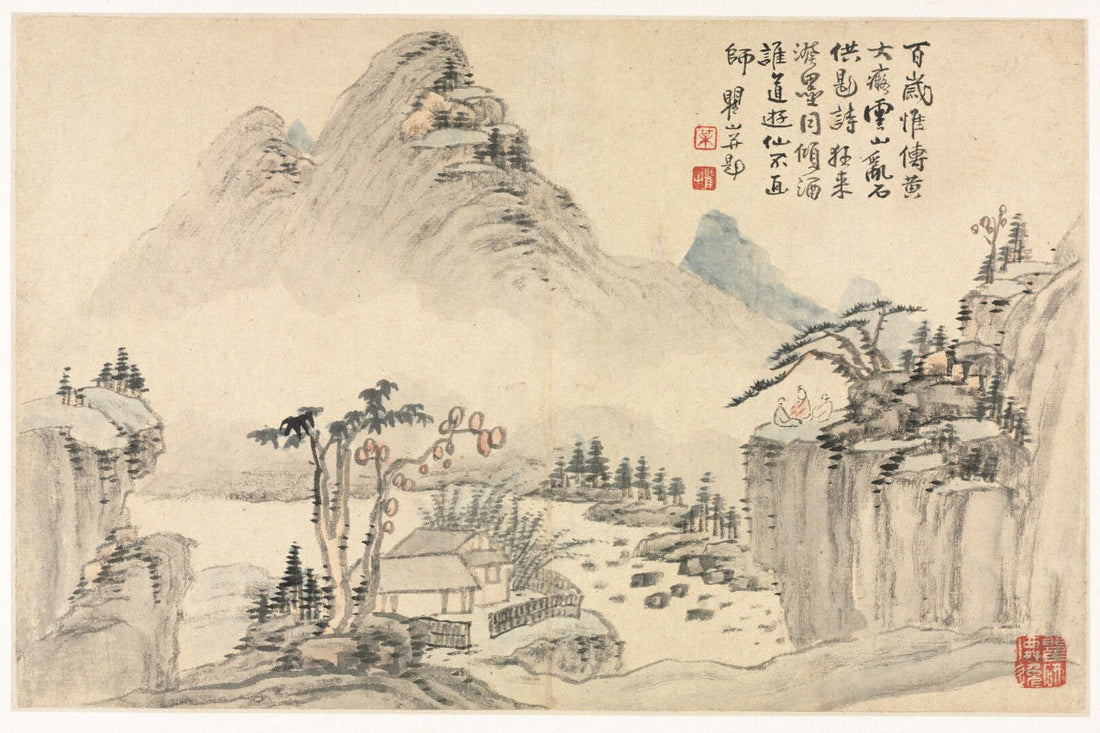 百歲惟傳黄
大癡雲山亂石
供題詩狂来
潑墨同傾酒
誰道逰仙不直
師 瞿山并題